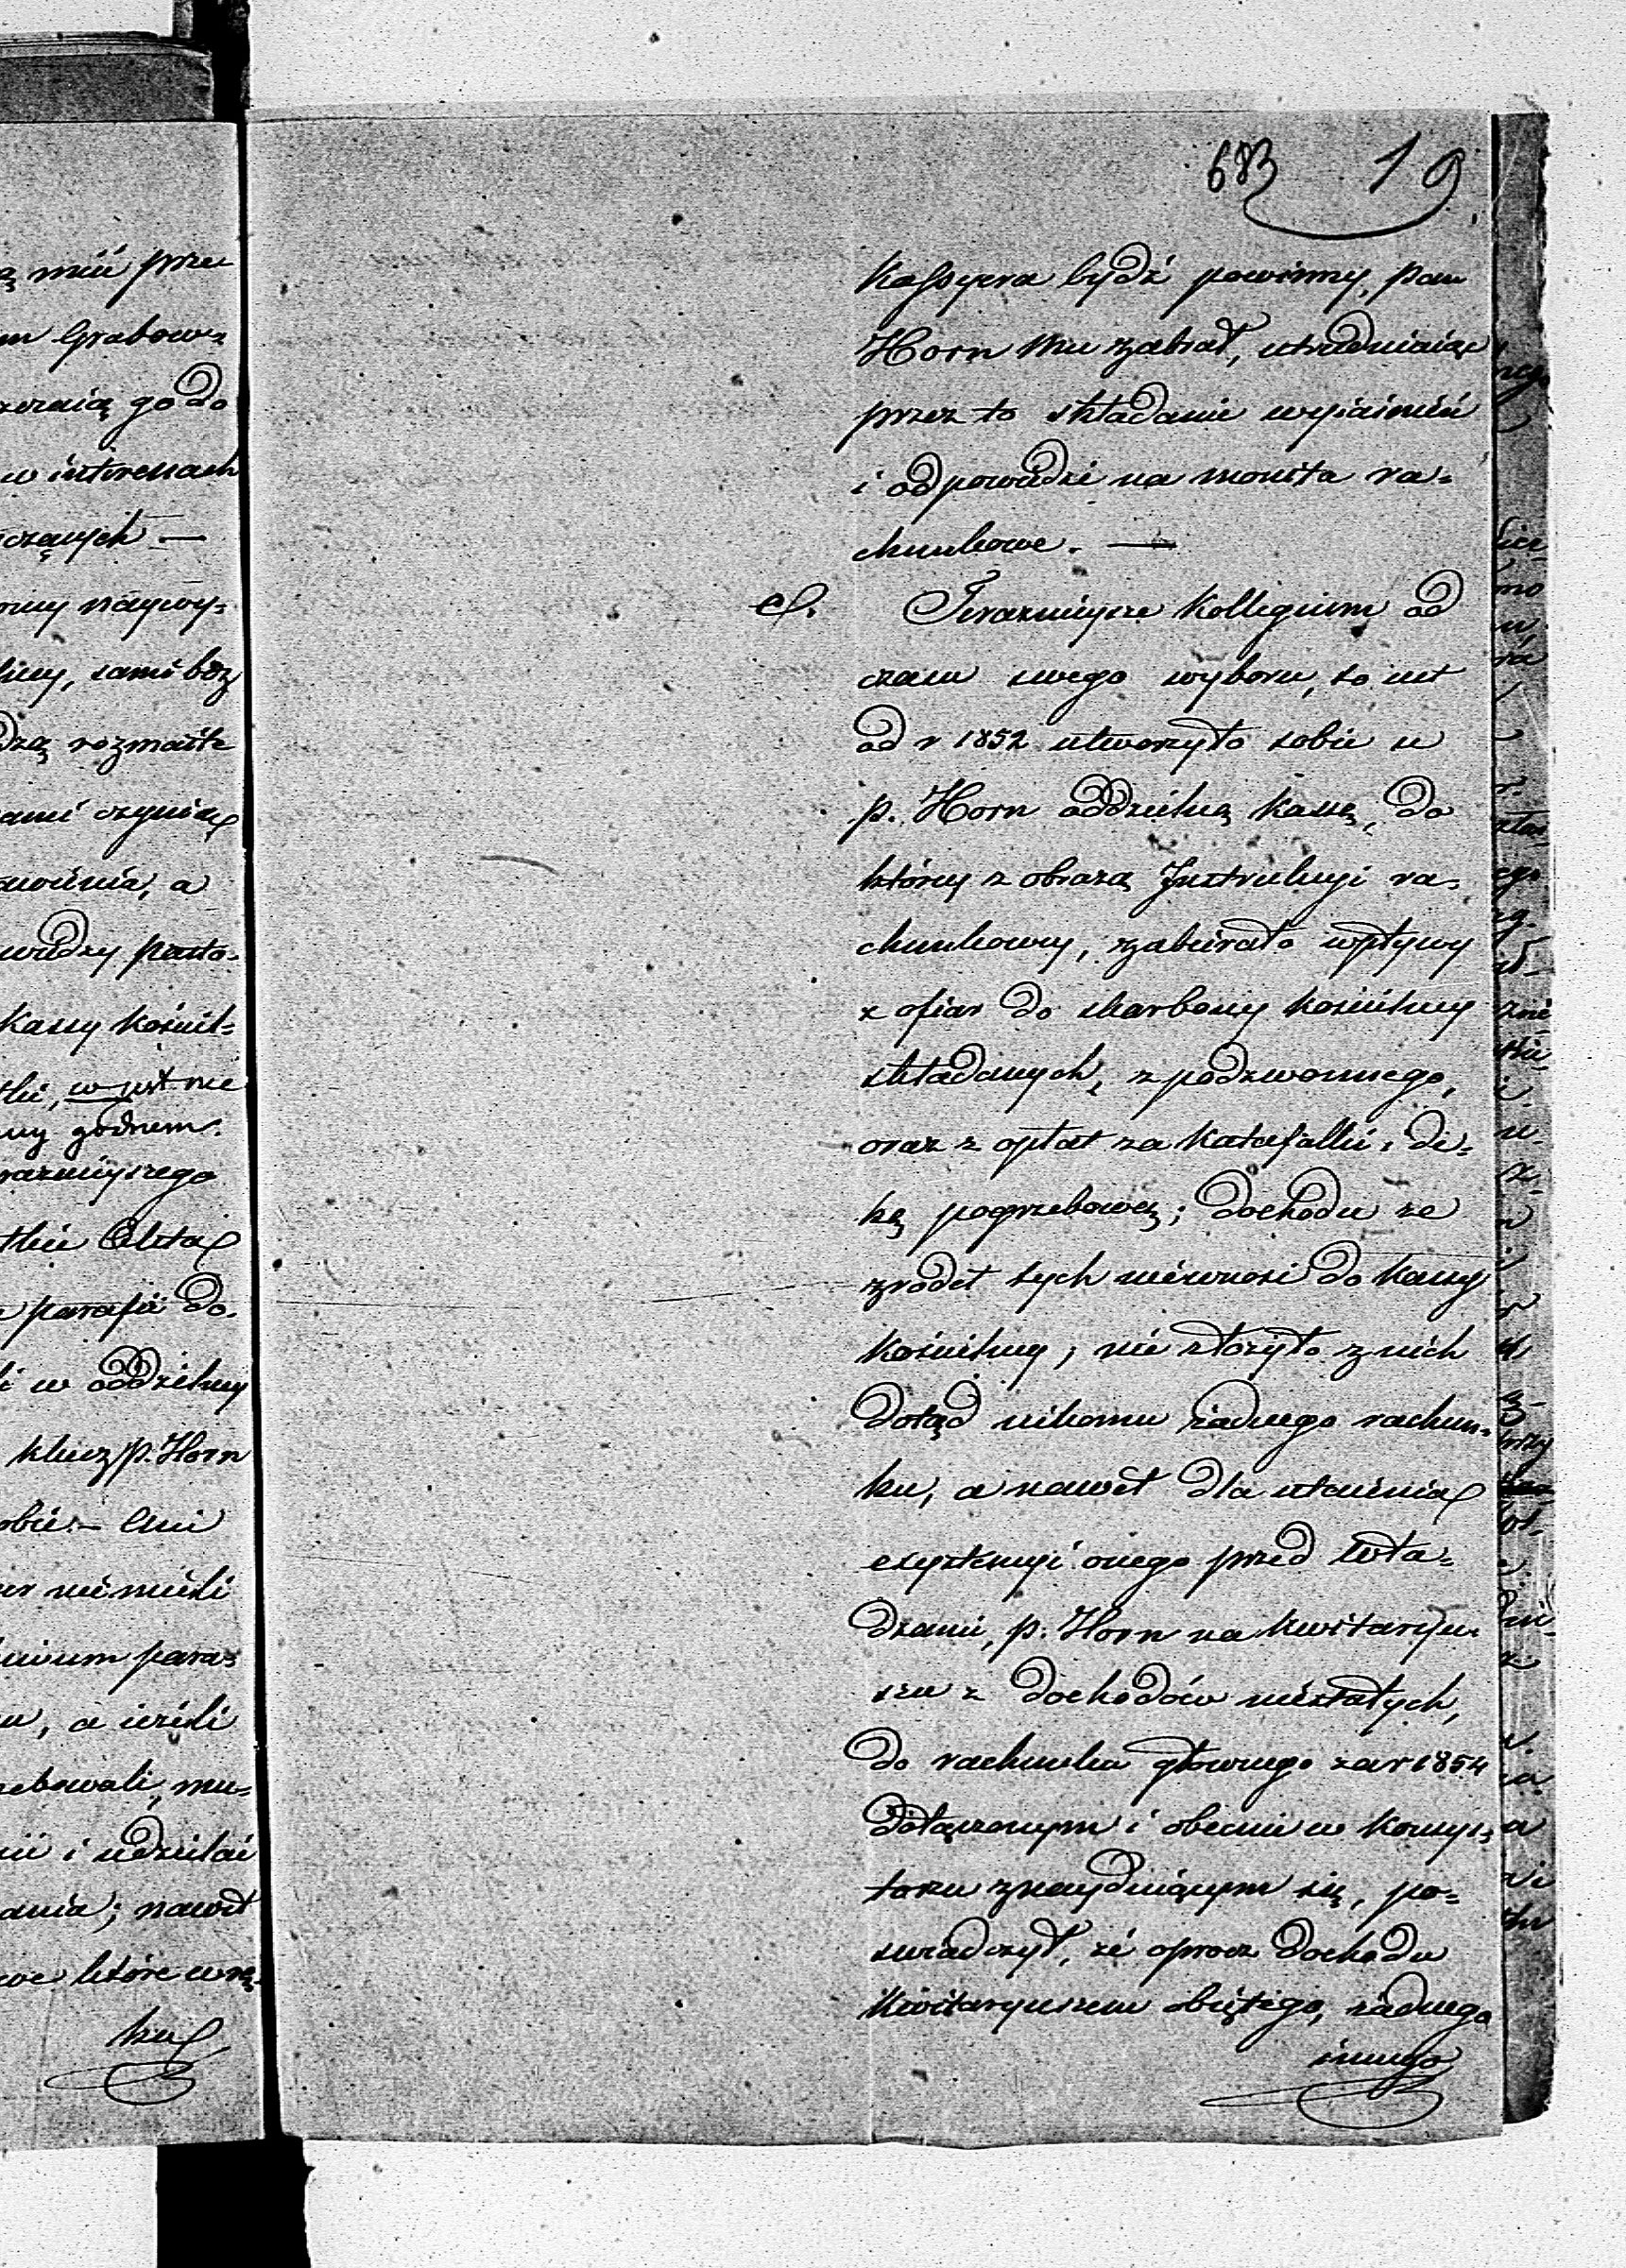 683 19
Kassyera bydź powinny, pan
Horn mu zabrał, utrudniaiąc
przez to składanie wyiaśnień
i odpowiedzi na monita ra=
chunkowe. —
c/. Teraznieysze Kollegium od
czasu swego wyboru, to iest
od r 1852 utworzyło sobie u
p. Horn oddzielną kassę, do
którey z obrazą Instrukcyi ra=
chunkowey, zabierało wpływy
z ofiar do skarbony kościelney
składanych, z podzwonnego,
oraz z opłat za katafalk i de=
kę pogrzebową; dochodu ze
zrodeł tych niewnosi do kassy
kościelney; nie złożyło z nich
dotąd nikomu żadnego rachun=
ku, a nawet dla utaienia
exystencyi onego przed Wła=
dzami, p. Horn na kwitaryu=
szu z dochodów niestałych,
do rachunku głownego za r 1854
dołączonym i obecnie w Konsys=
torzu znayduiącym się, po=
swiadczył, że oprocz dochodu
Kwitaryuszem obiętego, żadnego
innego
ą mieć prze
m Grabow=
go do
w interessach
czących —
naywy=
sami bez
dzą rozmaite
ami czynią
a
wiedzy pasto=
Kassy kościel=
w iest nie
godnem.
razniejszego
parafii do=
i w oddzielney
klucz p. Horn
obie. — Ani
niemieli
para=
u, a ieżeli
zebowali, mu=
i udzielać
ania; nawet
we które w rę=
ku